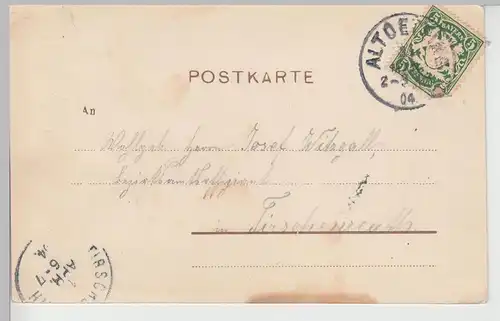 ALTOE
BAYERN
5 5
2-3
04
POSTKARTE
An
Wohlgeb. Herrn Josef Witzgall,
Bezirksamtsoffiziant
in Tirschenreuth
TIRSCHE
6-7
04.